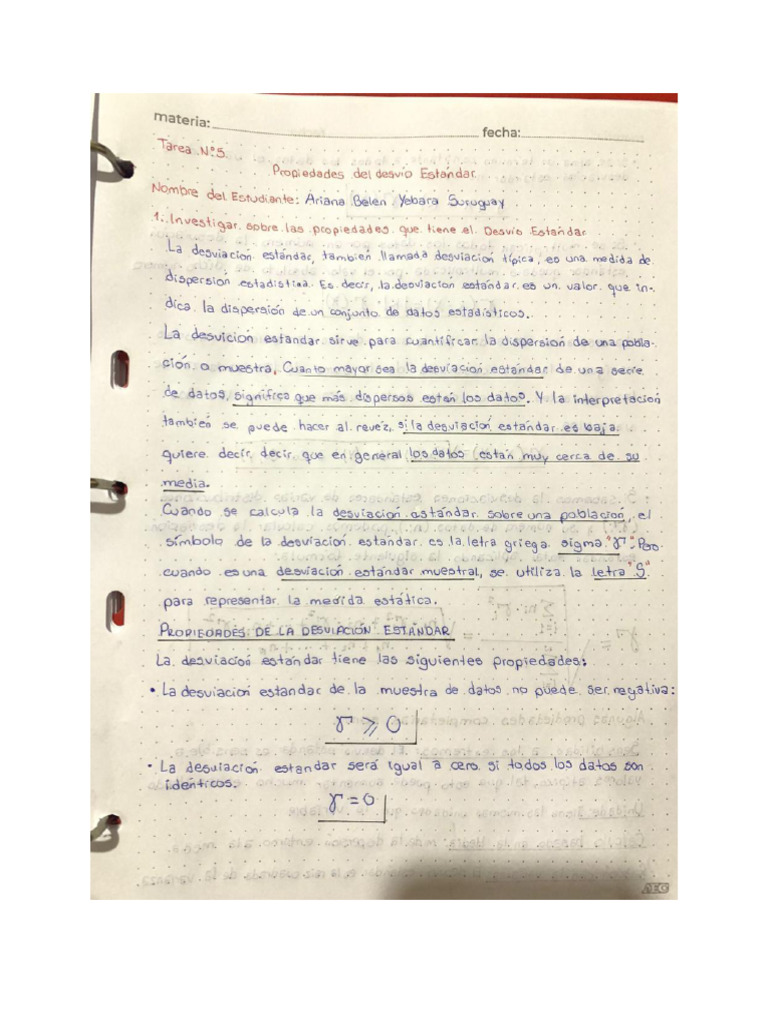 materia: fecha:
Tarea N°5
Propiedades del desvio Estándar
Nombre del Estudiante: Ariana Belen Yebara Suruguay
1. Investigar sobre las propiedades que tiene el Desvio Estandar
La desviación estándar, tambien llamada desviación típica, es una medida de
dispersión estadistina. Es decir, la desviación estándar es un valor que in-
dica la dispersión de un conjunto de datos estadísticos.
La desvición estandar sirve para cuantificar la dispersión de una pobla-
ción o muestra, Cuanto mayor sea la desviación estandar de una serie
de datos, significa que más dispersos están los datos. Y la interpretación
también se puede hacer al revez, si la desviación estándar es baja
quiere decir, decir que en general los datos están muy cerca de su
media.
Cuando se calcula la desviación estándar sobre una población, el
símbolo de la desviación estándar es la letra griega sigma "σ". Pero
cuando es una desviación estándar muestral, se utiliza la letra "S"
para representar la medida estática.
PROPIEDADES DE LA DESVIACIÓN ESTÁNDAR
La desviación estándar tiene las siguientes propiedades:
• La desviación estandar de la muestra de datos no puede ser negativa:
σ ⩾ 0
• La desviación estandar será igual a cero si todos los datos son
identicos.
σ = 0
AEG